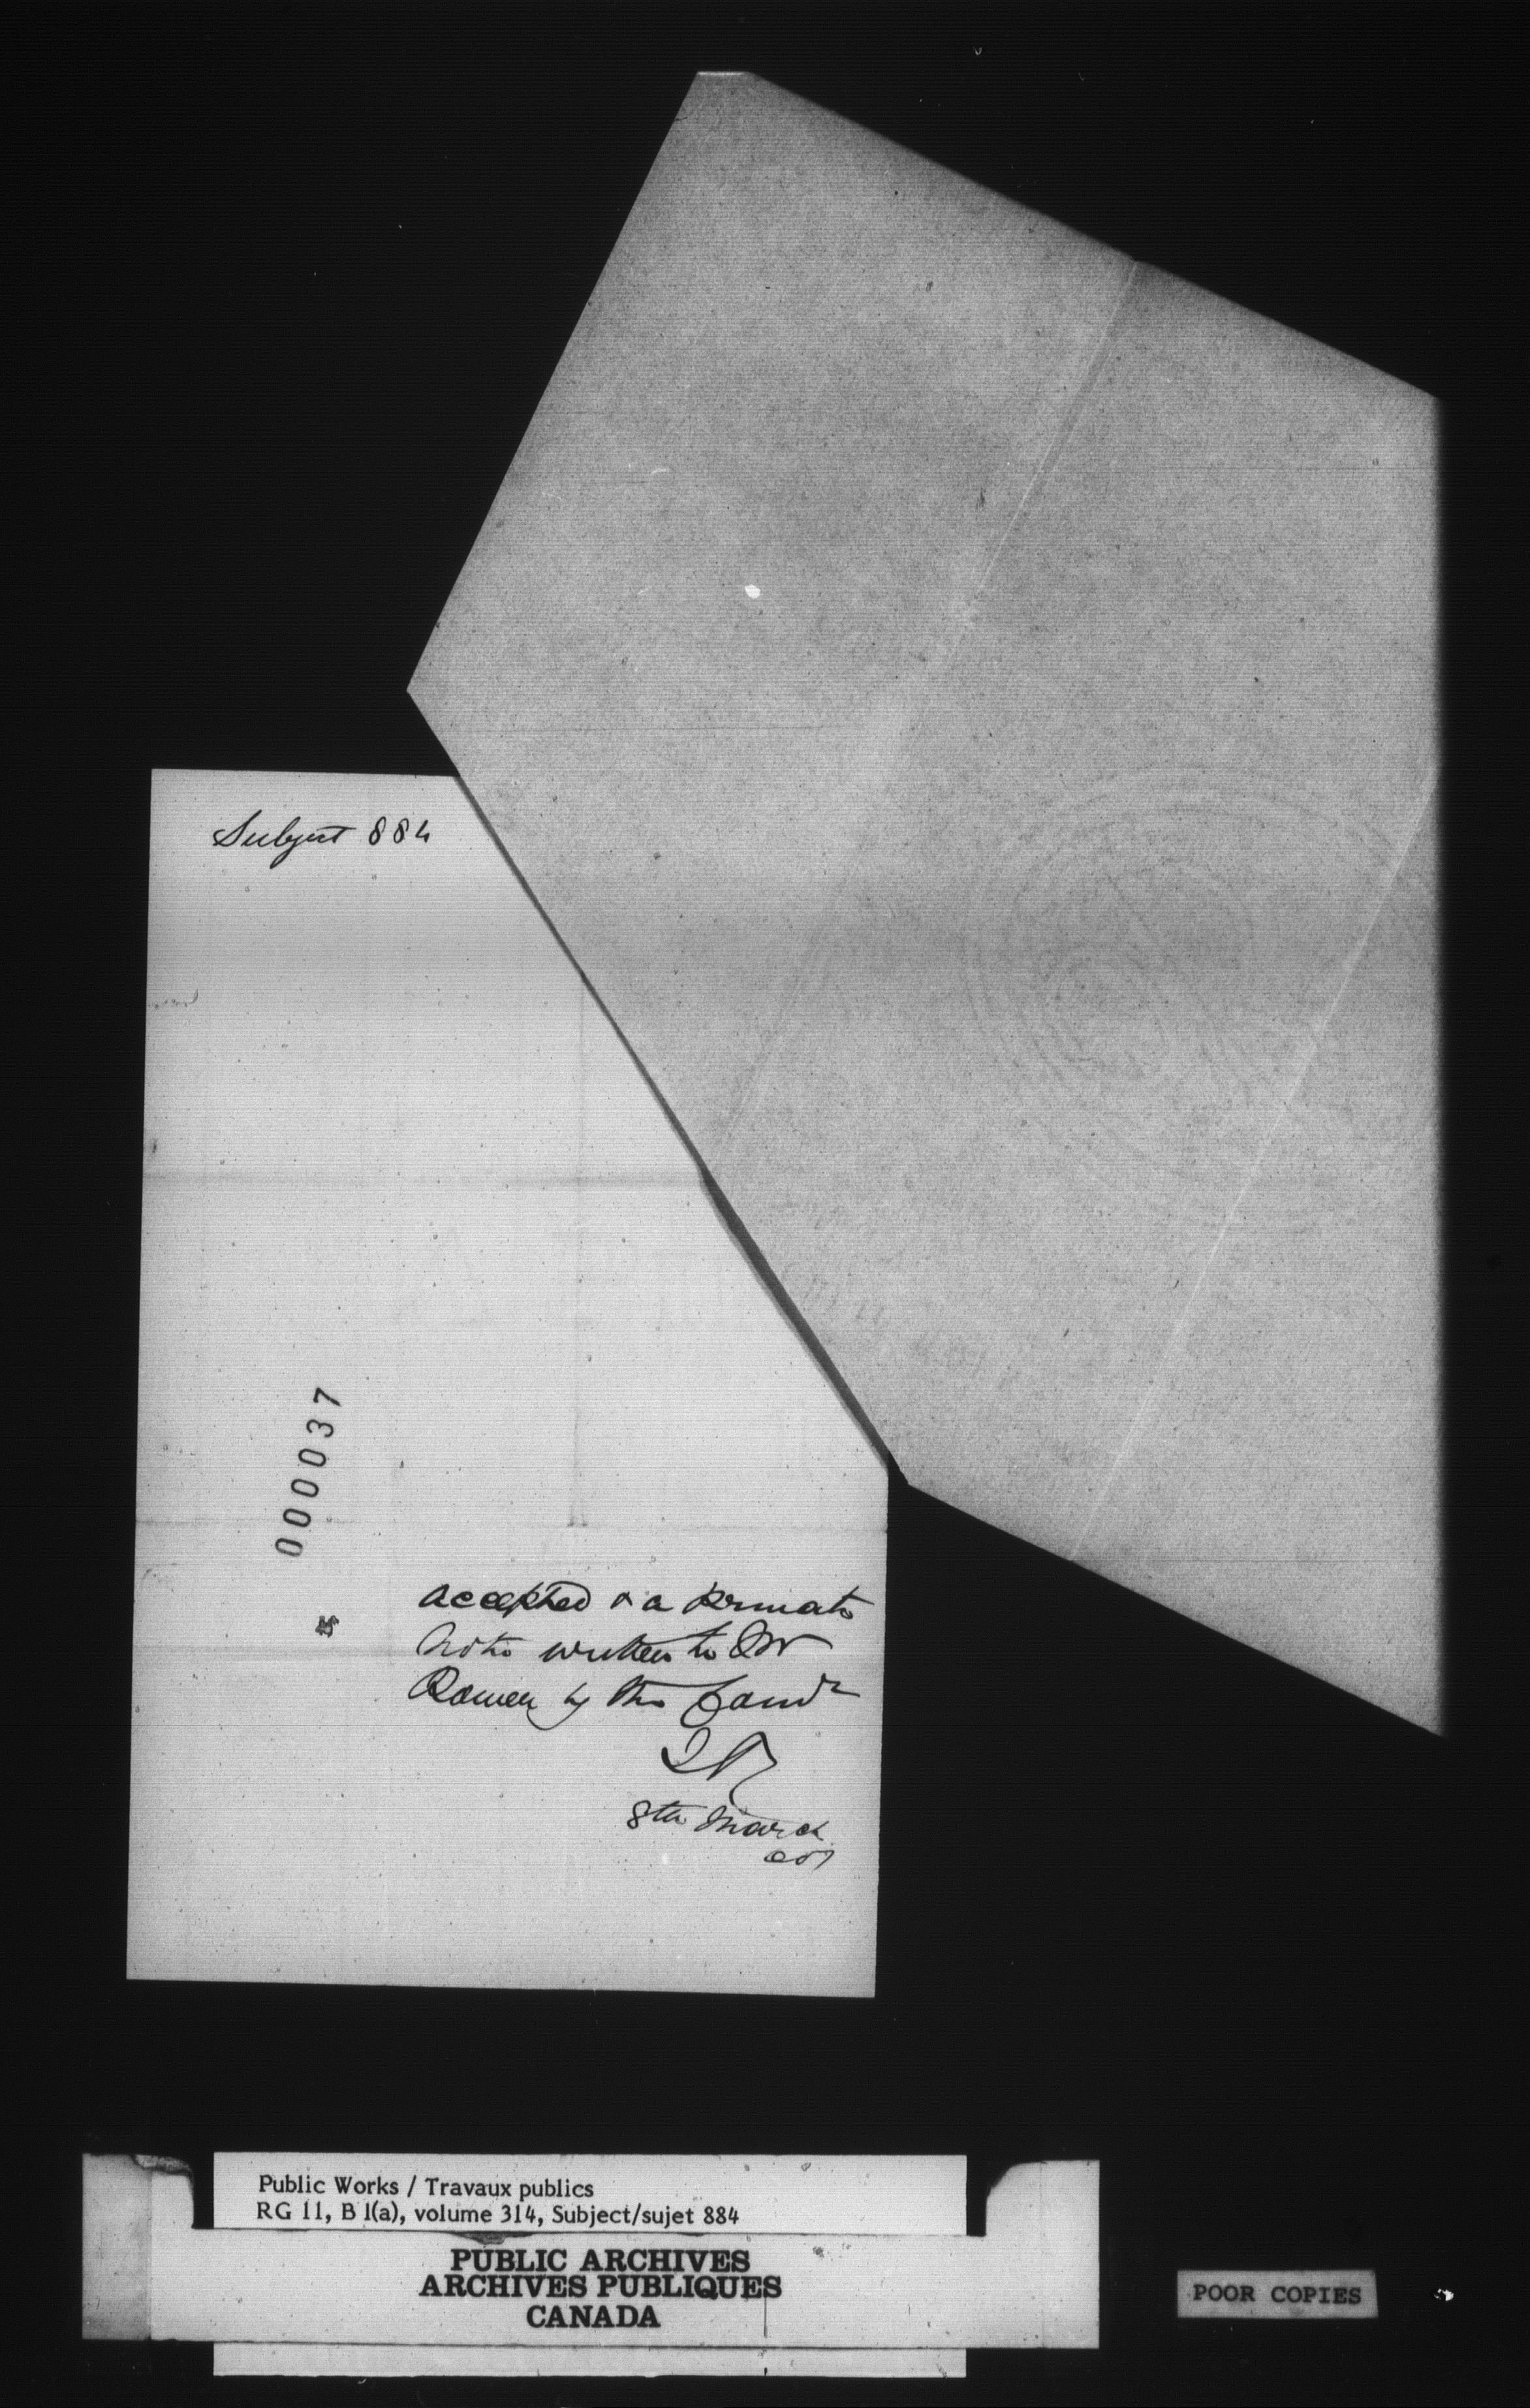 Subject 884
000037
accepted & a private
note written to Mr
by the
8th March
Public Works / Travaux publics
RG 11, B 1(a), volume 314, Subject/sujet 884
PUBLIC ARCHIVES
ARCHIVES PUBLIQUES
CANADA
POOR COPIES